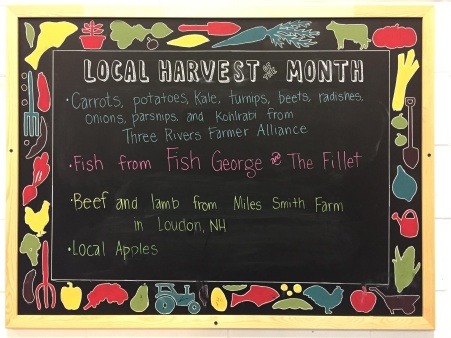 LOCAL HARVEST OF THE MONTH
• Carrots, potatoes, Kale, turnips, beets, radishes,
onions, parsnips, and Kohlrabi from
Three Rivers Farmer Alliance
• Fish from Fish George and The Fillet
• Beef and lamb from Miles Smith Farm
in Loudon, NH
• Local Apples